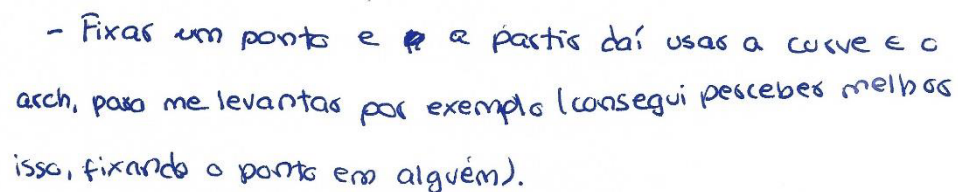 - Fixar um ponto e a partir daí usar a curve e o
arch, para me levantar por exemplo (consegui perceber melhor
isso, fixando o ponto em alguém).